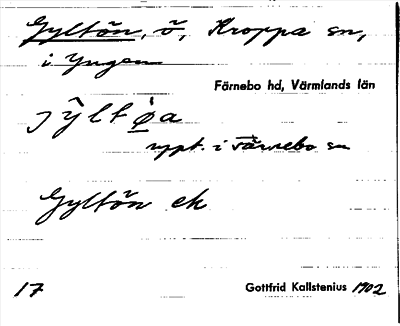 Gyltön, ö, Kroppa sn,
i Yngen
Färnebo hd, Värmlands län
jỳltø̀a
uppt. i Färnebo sn
Gyltön ek
17 Gottfrid Kallstenius 1902